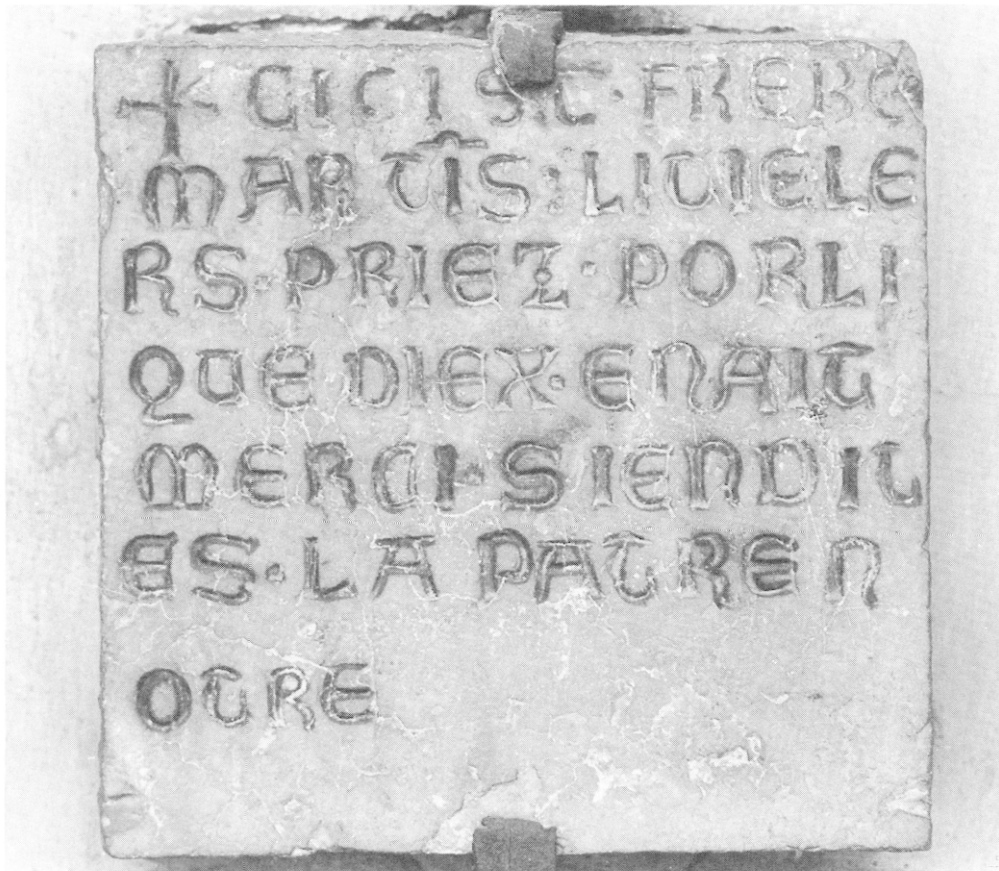 ✝ CI GIST · FRERE
MARTĪS : LI TIELE
RS · PRIEZ · POR LI
QUE DIEX · EN AIT
MERCI · SI EN DIT
ES · LA PATREN
OTRE